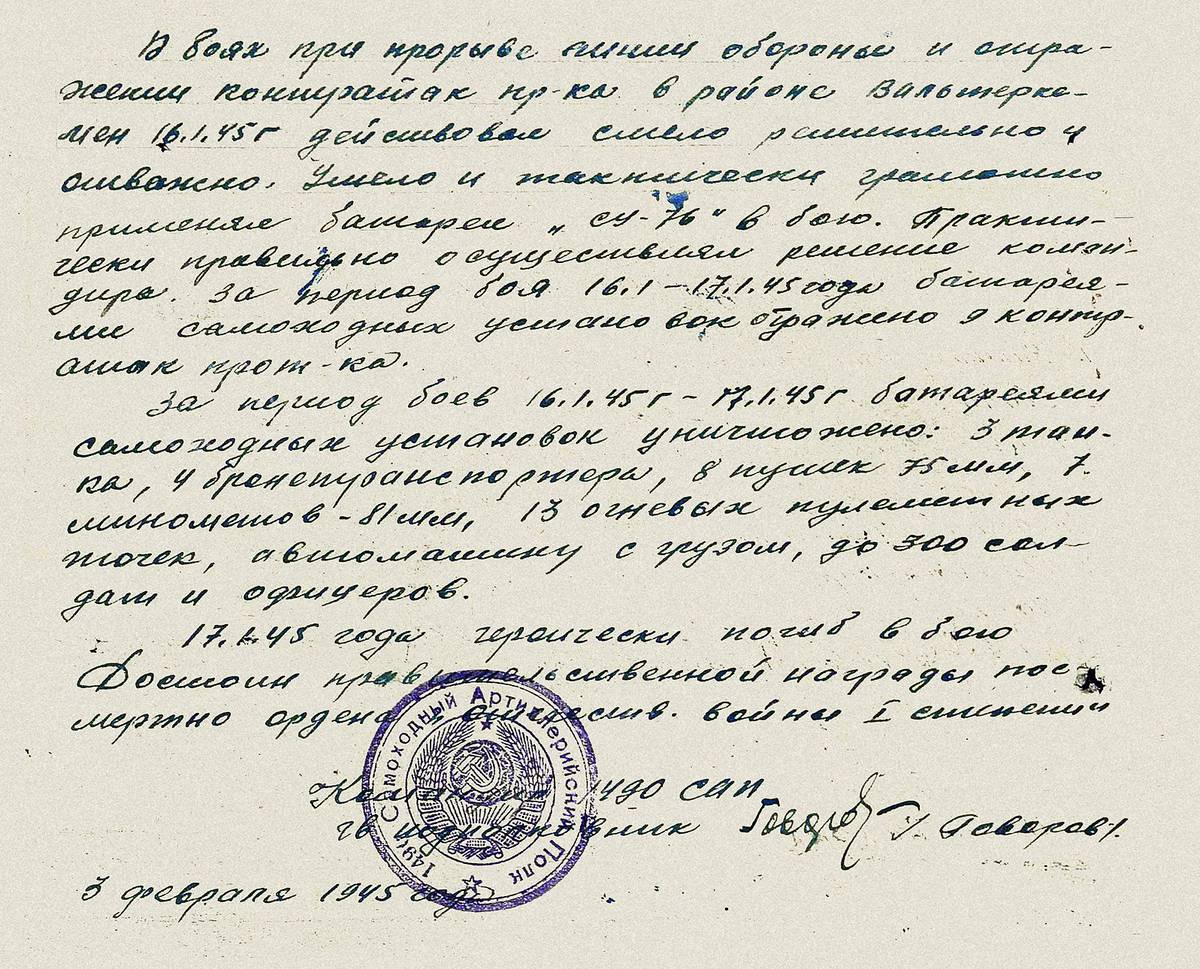 В боях при прорыве линии обороны и отра-
жении контратак пр-ка в районе Вальтерке-
мен 16.1.45г действовал смело решительно и
отважно. Умело и тактически грамотно
применял батареи „СУ-76" в бою. Практи-
чески правильно осуществлял решение коман-
дира. За период боя 16.1-17.1.45 года батарея-
ми самоходных установок отражено 9 контр-
атак прот-ка.
За период боев 16.1.45г - 17.1.45г батареями
самоходных установок уничтожено: 3 тан-
ка, 4 бронетранспортера, 8 пушек 75мм, 7
минометов-81мм, 13 огневых пулеметных
точек, автомашину с грузом, до 300 сол-
дат и офицеров.
17.1.45 года героически погиб в бою
Достоин правительственной награды пос-
мертно ордена Отечеств. войны I степени
Командир 1490 САП
гв подполковник Говоров / Говоров /.
1490 Самоходный Артиллерийский Полк
3 февраля 1945 года